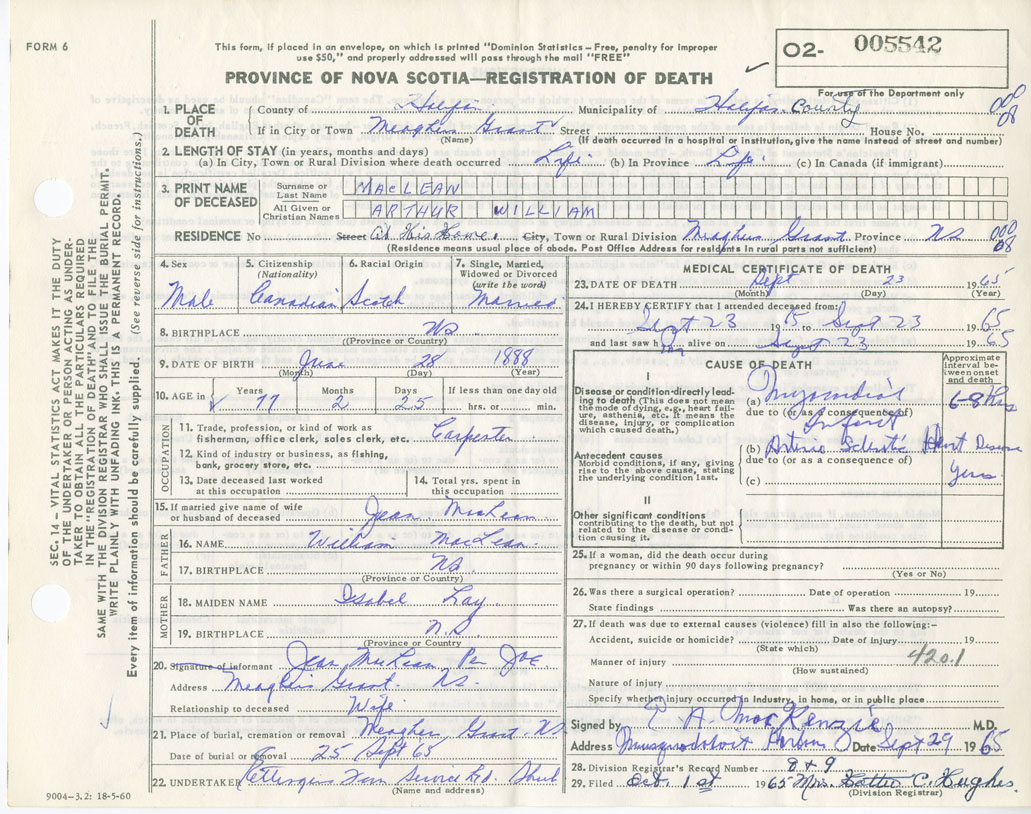 FORM 6
This form, if placed in an envelope, on which is printed "Dominion Statistics—Free, penalty for improper
use $50," and properly addressed will pass through the mail "FREE"
O2- 005542
PROVINCE OF NOVA SCOTIA—REGISTRATION OF DEATH
For use of the Department only
1. PLACE OF DEATH
County of Halifax Municipality of Halifax County
If in City or Town Meaghers Grant Street House No.
(Name) (If death occurred in a hospital or institution, give the name instead of street and number)
2. LENGTH OF STAY (in years, months and days)
(a) In City, Town or Rural Division where death occurred Life (b) In Province Life (c) In Canada (if immigrant)
3. PRINT NAME OF DECEASED
Surname or Last Name MACLEAN
All Given or Christian Names ARTHUR WILLIAM
RESIDENCE No Street At His Home. City, Town or Rural Division Meaghers Grant Province NS
(Residence means usual place of abode. Post Office Address for residents in rural parts not sufficient)
008
08
000
08
4. Sex
Male
5. Citizenship
(Nationality)
Canadian
6. Racial Origin
Scotch
7. Single, Married,
Widowed or Divorced
(write the word)
Married
8. BIRTHPLACE NS
(Province or Country)
9. DATE OF BIRTH June 28 1888
(Month) (Day) (Year)
10. AGE in
Years 77
Months 2
Days 25
If less than one day old
hrs. or min.
OCCUPATION
11. Trade, profession, or kind of work as
fisherman, office clerk, sales clerk, etc. Carpenter
12. Kind of industry or business, as fishing,
bank, grocery store, etc.
13. Date deceased last worked
at this occupation
14. Total yrs. spent in
this occupation
15. If married give name of wife
or husband of deceased Jean MacLean
FATHER
16. NAME William MacLean
17. BIRTHPLACE NS
(Province or Country)
MOTHER
18. MAIDEN NAME Isabel Lay
19. BIRTHPLACE N.S
(Province or Country)
20. Signature of informant Jean MacLean Per Joe
Address Meaghers Grant. NS.
Relationship to deceased Wife
21. Place of burial, cremation or removal Meaghers Grant. NS
Date of burial or removal 25 Sept 65
22. UNDERTAKER Service Ltd.
(Name and address)
9004—3.2: 18-5-60
MEDICAL CERTIFICATE OF DEATH
23. DATE OF DEATH Sept 23 1965
(Month) (Day) (Year)
24. I HEREBY CERTIFY that I attended deceased from:
Sept 23 1965 to Sept 23 1965
and last saw him alive on Sept 23 1965
CAUSE OF DEATH
Approximate
interval be-
tween onset
and death
I
Disease or condition directly lead-
ing to death (This does not mean
the mode of dying, e.g., heart fail-
ure, asthenia, etc. It means the
disease, injury, or complication
which caused death.)
(a) Myocardial Infarct 6-8 Hrs
due to (or as a consequence of)
Antecedent causes
Morbid conditions, if any, giving
rise to the above cause, stating
the underlying condition last.
(b) Arterio Sclerotic Heart Disease
due to (or as a consequence of)
(c) Years
II
Other significant conditions
contributing to the death, but not
related to the disease or condi-
tion causing it.
25. If a woman, did the death occur during
pregnancy or within 90 days following pregnancy?
(Yes or No)
26. Was there a surgical operation? Date of operation 19
State findings Was there an autopsy?
27. If death was due to external causes (violence) fill in also the following:—
Accident, suicide or homicide? Date of injury 19
(State which)
420.1
Manner of injury
(How sustained)
Nature of injury
Specify whether injury occurred in industry, in home, or in public place
Signed by E A. MacKenzie M.D.
Address Musquodoboit Harbour Date: Sept 29 1965
28. Division Registrar's Record Number 8 + 9
29. Filed Oct. 1st 1965 Mrs. C. Hughes.
(Division Registrar)
SEC. 14 — VITAL STATISTICS ACT MAKES IT THE DUTY
OF THE UNDERTAKER OR PERSON ACTING AS UNDER-
TAKER TO OBTAIN ALL THE PARTICULARS REQUIRED
IN THE "REGISTRATION OF DEATH" AND TO FILE THE
SAME WITH THE DIVISION REGISTRAR WHO SHALL ISSUE THE BURIAL PERMIT.
WRITE PLAINLY WITH UNFADING INK. THIS IS A PERMANENT RECORD.
Every item of information should be carefully supplied. (See reverse side for instructions.)